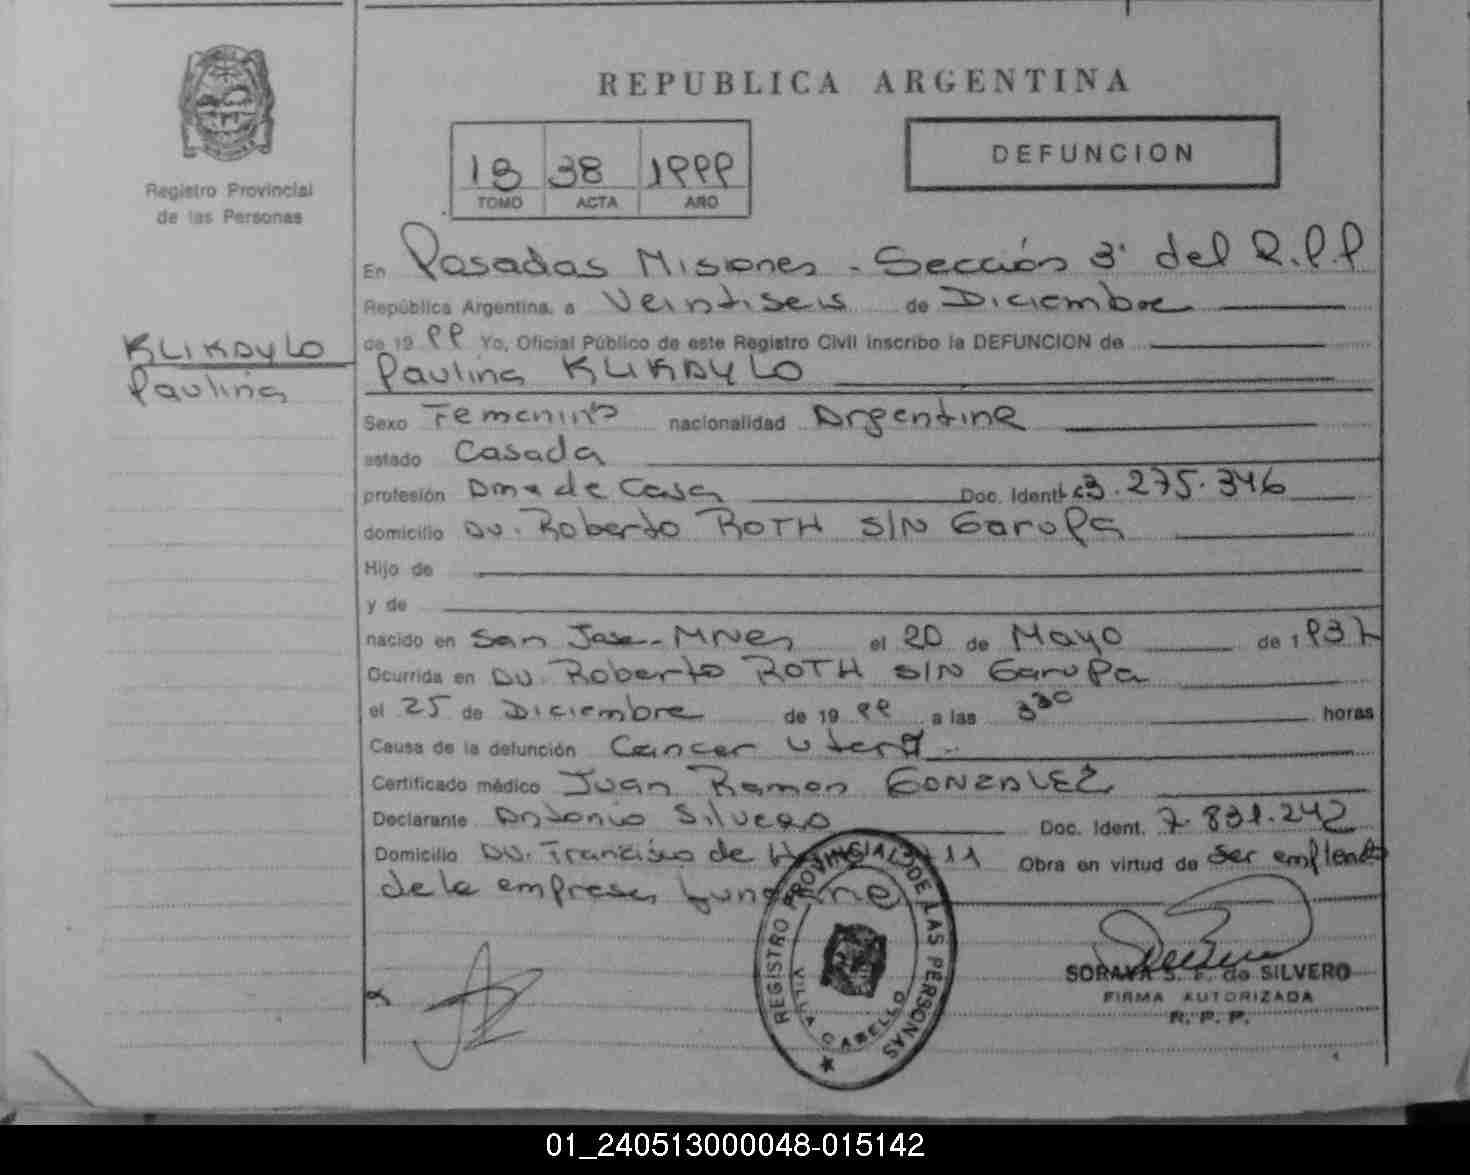 REPUBLICA ARGENTINA
Registro Provincial
de las Personas
38 1999
TOMO ACTA AÑO
DEFUNCION
En Posadas Misiones - Sección 3ª del R.P.P
República Argentina, a Veintiseis de Diciembre
de 1999 Yo, Oficial Público de este Registro Civil inscribo la DEFUNCION de
Paulina KLIKAYLO
KLIKAYLO
Paulina
Sexo Femenino nacionalidad Argentina
estado Casada
profesión Ama de Casa Doc. Ident. 3.275.346
domicilio AV. Roberto ROTH S/N Garupa
Hijo de
y de
nacido en San Jose - MNes el 20 de Mayo de 1937
Ocurrida en AV. Roberto ROTH S/N Garupa
el 25 de Diciembre de 1999 a las 3 30 horas
Causa de la defunción Cancer utero.
Certificado médico Juan Ramon GONZALEZ
Declarante Antonio Silvero Doc. Ident. 7.831.242
Domicilio AV. Francisco de 11 Obra en virtud de ser empleado
de la empresa
REGISTRO PROVINCIAL DE LAS PERSONAS
VILLA CABELLO
SORAYA S. F. de SILVERO
FIRMA AUTORIZADA
R. P. P.
01_240513000048-015142